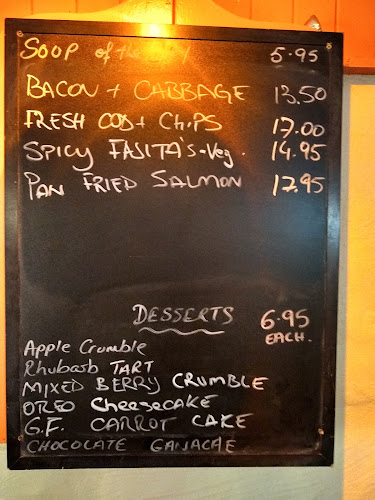 SOUP of the DAY 5.95
BACON + CABBAGE 13.50
FRESH COD + CHIPS 17.00
SPICY FAJITA'S - Veg. 14.95
PAN FRIED SALMON 17.95
DESSERTS 6.95
EACH.
Apple Crumble
Rhubarb TART
MIXED BERRY CRUMBLE
OREO CHEESECAKE
G.F. CARROT CAKE
CHOCOLATE GANACHE